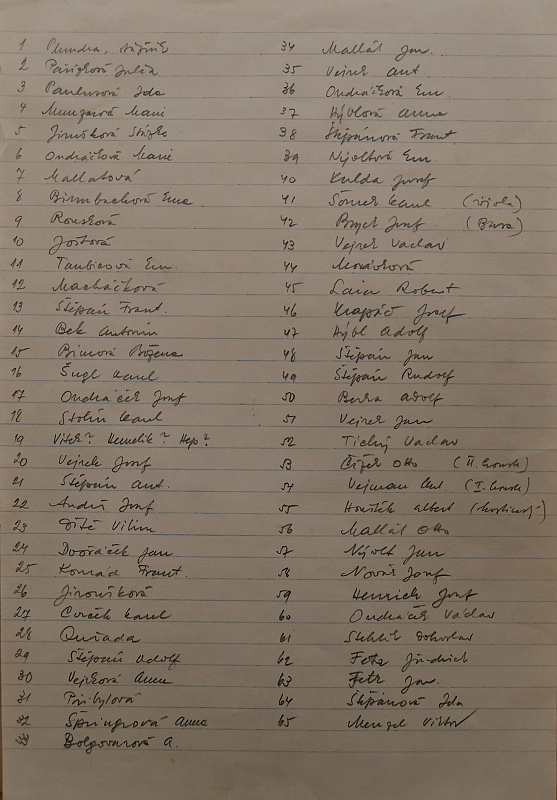 1
2 Julča
3 Ida
4 Marie
5
6 Ondráčková Marie
7 Mallatová
8 Birnbachová Ema
9 Roušková
10 Joštová
11 Em.
12 Macháčková
13 Štěpán Frant.
14 Bek Antonín
15 Božena
16 Šugl Karel
17 Ondráček Josef
18 Stolín Karel
19 Vítek? Hemelík? Hepo?
20 Vejrek Josef
21 Štěpán Ant.
22 Andrš Josef
23 Dítě Vilém
24 Dvořáček Jan
25 Konrád Frant.
26 Jiroušková
27 Cvrček Karel
28 Quiada
29 Štěpán Adolf
30 Vejrková Anna
31 Přibylová
32 Špringrová Anna
33 A.
34 Mallát Jan.
35 Vejrek Ant.
36 Ondráčková Em.
37 Hýblová Anna
38 Štěpánová Frant
39 Em.
40 Kulda Josef
41 Karel (viola)
42 Josef (Basa)
43 Vejrek Václav
44 Nováková
45 Robert
46 Krapáč Josef
47 Hýbl Adolf
48 Štěpán Jan
49 Štěpán Rudolf
50 Berka Adolf
51 Vejrek Jan
52 Tichý Václav
53 Otto (II. housle)
54 Vejman Ant (I. housle)
55 Albert
56 Mallát Otto
57 Jan
58 Novák Josef
59 Henrich Josef
60 Ondráček Václav
61 Stehlík Bohuslav
62 Fetr Jindřich
63 Fetr Jan.
64 Štěpánová Ida
65 Mengel Viktor